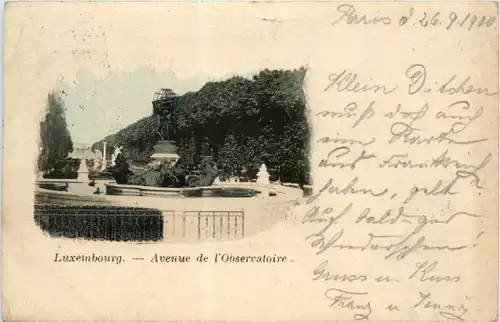 Paris d. 26.9.1900
Klein Ditchen
muß doch
eine Karte
aus Frankreich
haben, gelt?
Auf baldiges
Wiedersehen!
Gruss u. Kuss
Franz u
Luxembourg. — Avenue de l'Observatoire.